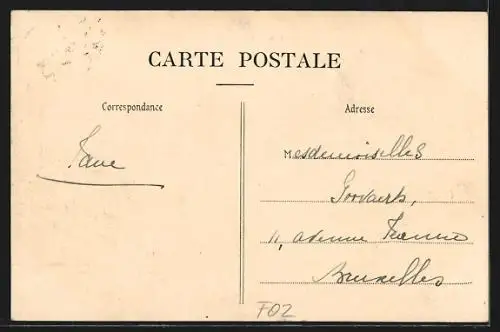 CARTE POSTALE
Correspondance
Adresse
Mesdemoiselles
Goovaerts,
11, avenue
Bruxelles
F02